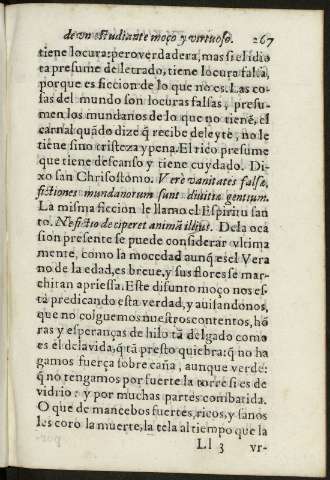 de vn estudiante moço y virtuoso. 267
tiene locura: pero verdadera, mas si el idio
ta presume de letrado, tiene locura falsa,
porque es ficcion de lo que no es. Las co-
sas del mundo son locuras falsas, presu-
men los mundanos de lo que no tienẽ, el
carnal quãdo dize q̃ recibe deleyte, no le
tiene sino tristeza y pena. El rico presume
que tiene descanso y tiene cuydado. Di-
xo san Chrisostõmo. Verè vanitates falsæ,
fictiones mundanorum sunt diuitiæ gentium.
La misma ficcion le llamo el Espiritu san
to. Ne fictio deciperet animã illius. De la oca
sion presente se puede considerar vltima
mente, como la mocedad aunq̃ es el Vera
no de la edad, es breue, y sus flores se mar-
chitan apriessa. Este difunto moço nos es-
tà predicando esta verdad, y auisandonos,
que no colguemos nuestros contentos, hõ
ras y esperanças de hilo tã delgado como
es el de la vida, q̃ tã presto quiebra: q̃ no ha
gamos fuerça sobre caña, aunque verde:
q̃ no tengamos por fuerte la torre si es de
vidrio: y por muchas partes combatida.
O que de mancebos fuertes, ricos, y sanos
les cortò la muerte, la tela al tiempo que la
Ll 3 vr-